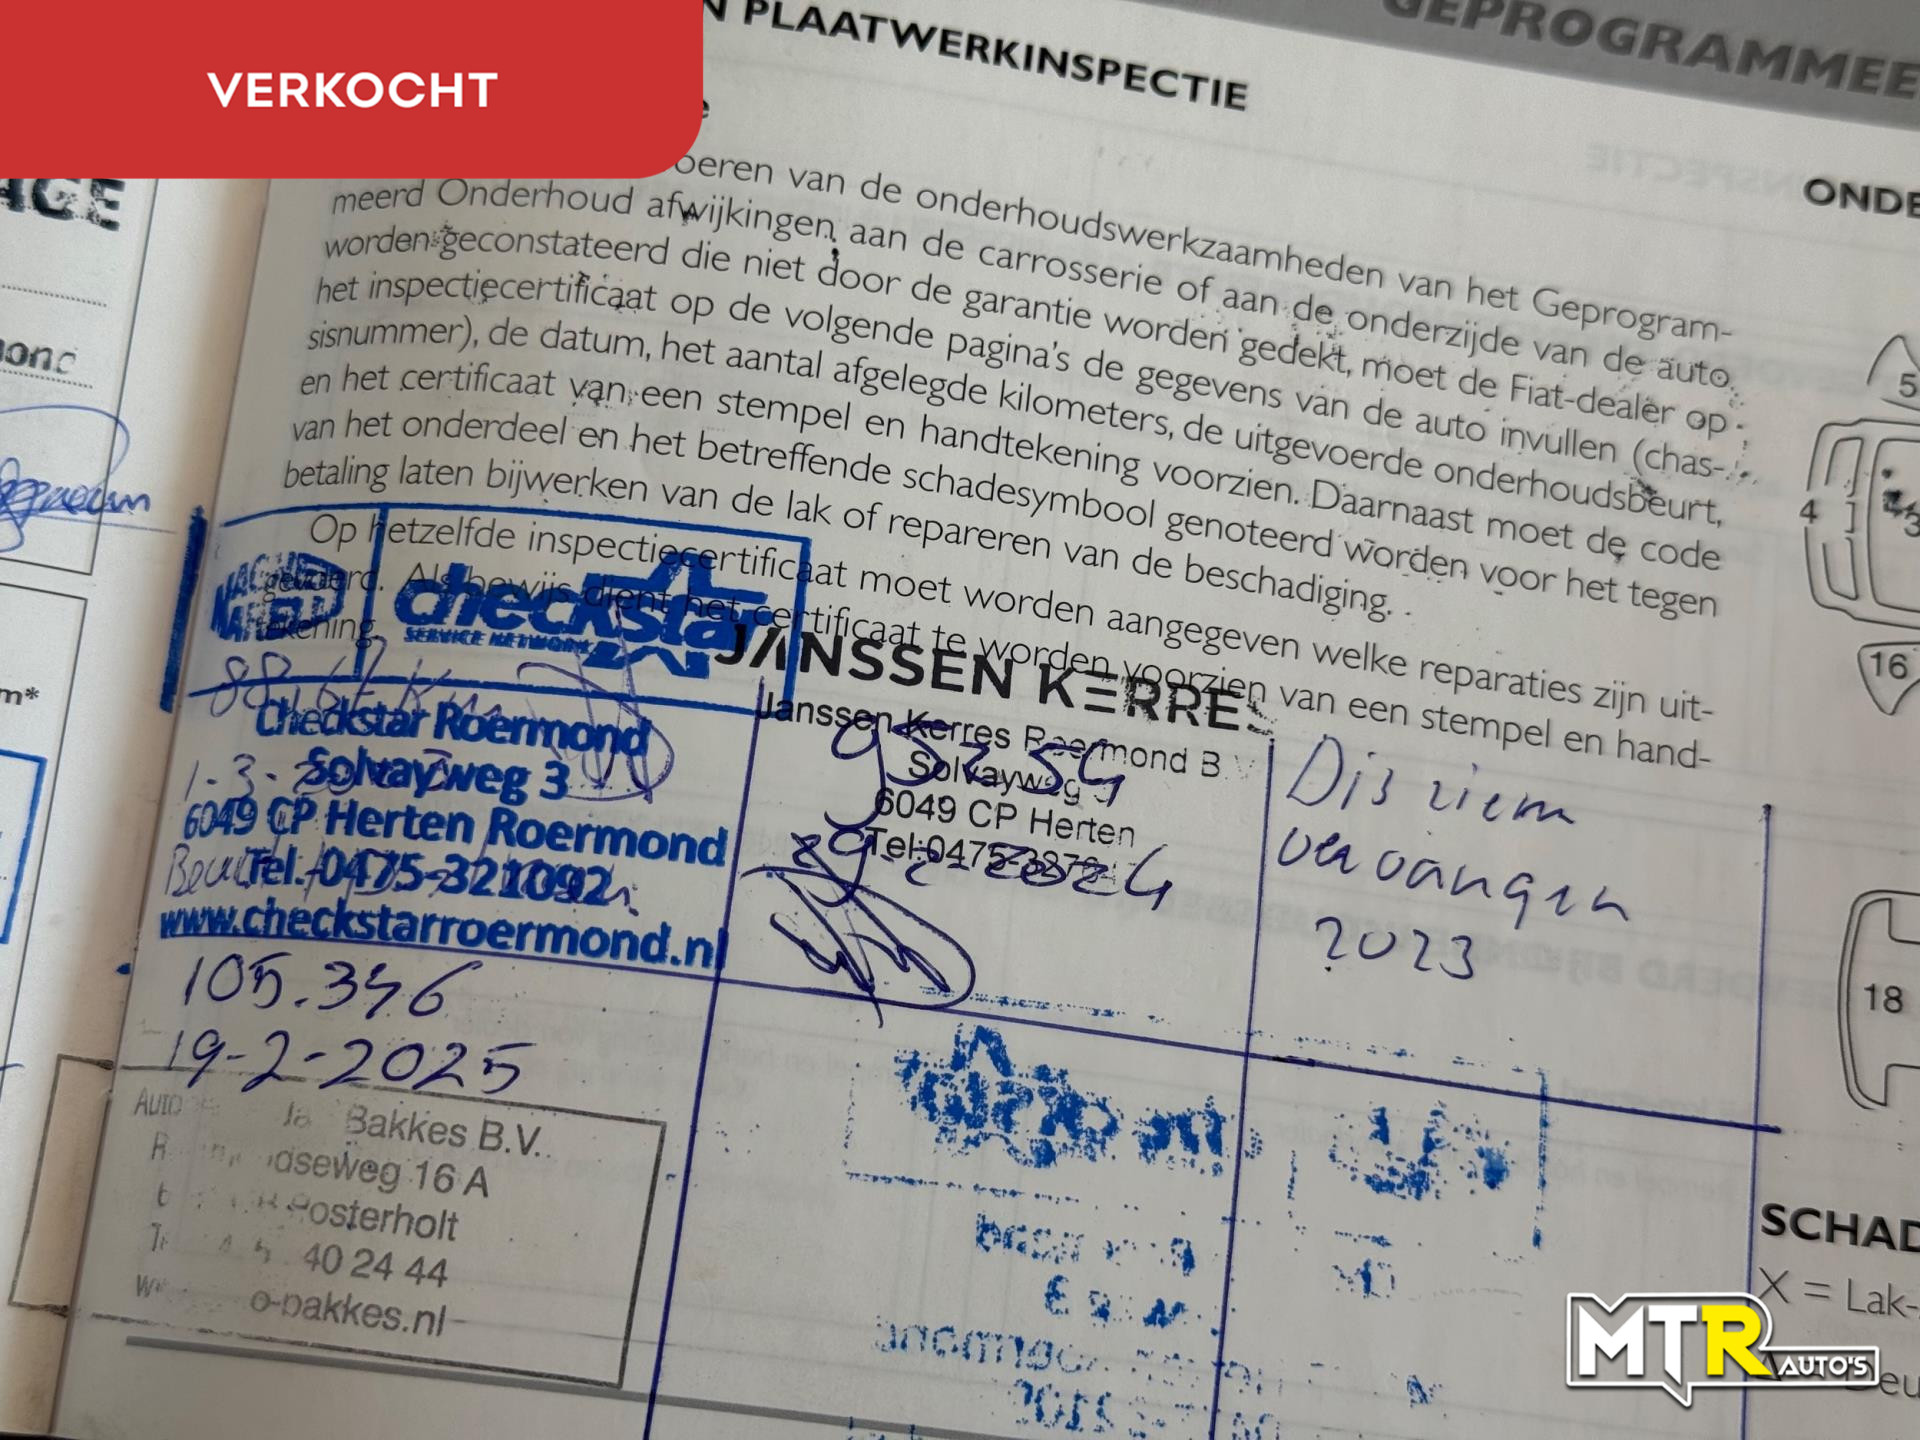 VERKOCHT
PLAATWERKINSPECTIE
GEPROGRAMMEE
AGE
ONDE
oeren van de onderhoudswerkzaamheden van het Geprogram-
meerd Onderhoud afwijkingen aan de carrosserie of aan de onderzijde van de auto
worden geconstateerd die niet door de garantie worden gedekt, moet de Fiat-dealer op
het inspectiecertificaat op de volgende pagina's de gegevens van de auto invullen (chas-
sisnummer), de datum, het aantal afgelegde kilometers, de uitgevoerde onderhoudsbeurt,
en het certificaat van een stempel en handtekening voorzien. Daarnaast moet de code
van het onderdeel en het betreffende schadesymbool genoteerd worden voor het tegen
betaling laten bijwerken van de lak of repareren van de beschadiging.
Op hetzelfde inspectiecertificaat moet worden aangegeven welke reparaties zijn uit-
gevoerd. Als bewijs dient het certificaat te worden voorzien van een stempel en hand-
tekening.
checkstar
SERVICE NETWORK
Checkstar Roermond
Solvayweg 3
6049 CP Herten Roermond
Tel. 0475-321092
www.checkstarroermond.nl
JANSSEN KERRES
Janssen Kerres Roermond B.V.
Solvayweg
6049 CP Herten
Tel.0475-
95254
29-2-2024
Distriem
vervangen
2023
105.346
19-2-2025
Bakkes B.V.
16 A
Posterholt
40 24 44
o-bakkes.nl
m*
5
4
3
16
18
SCHAD
X = Lak-
Deu
MTR AUTO'S